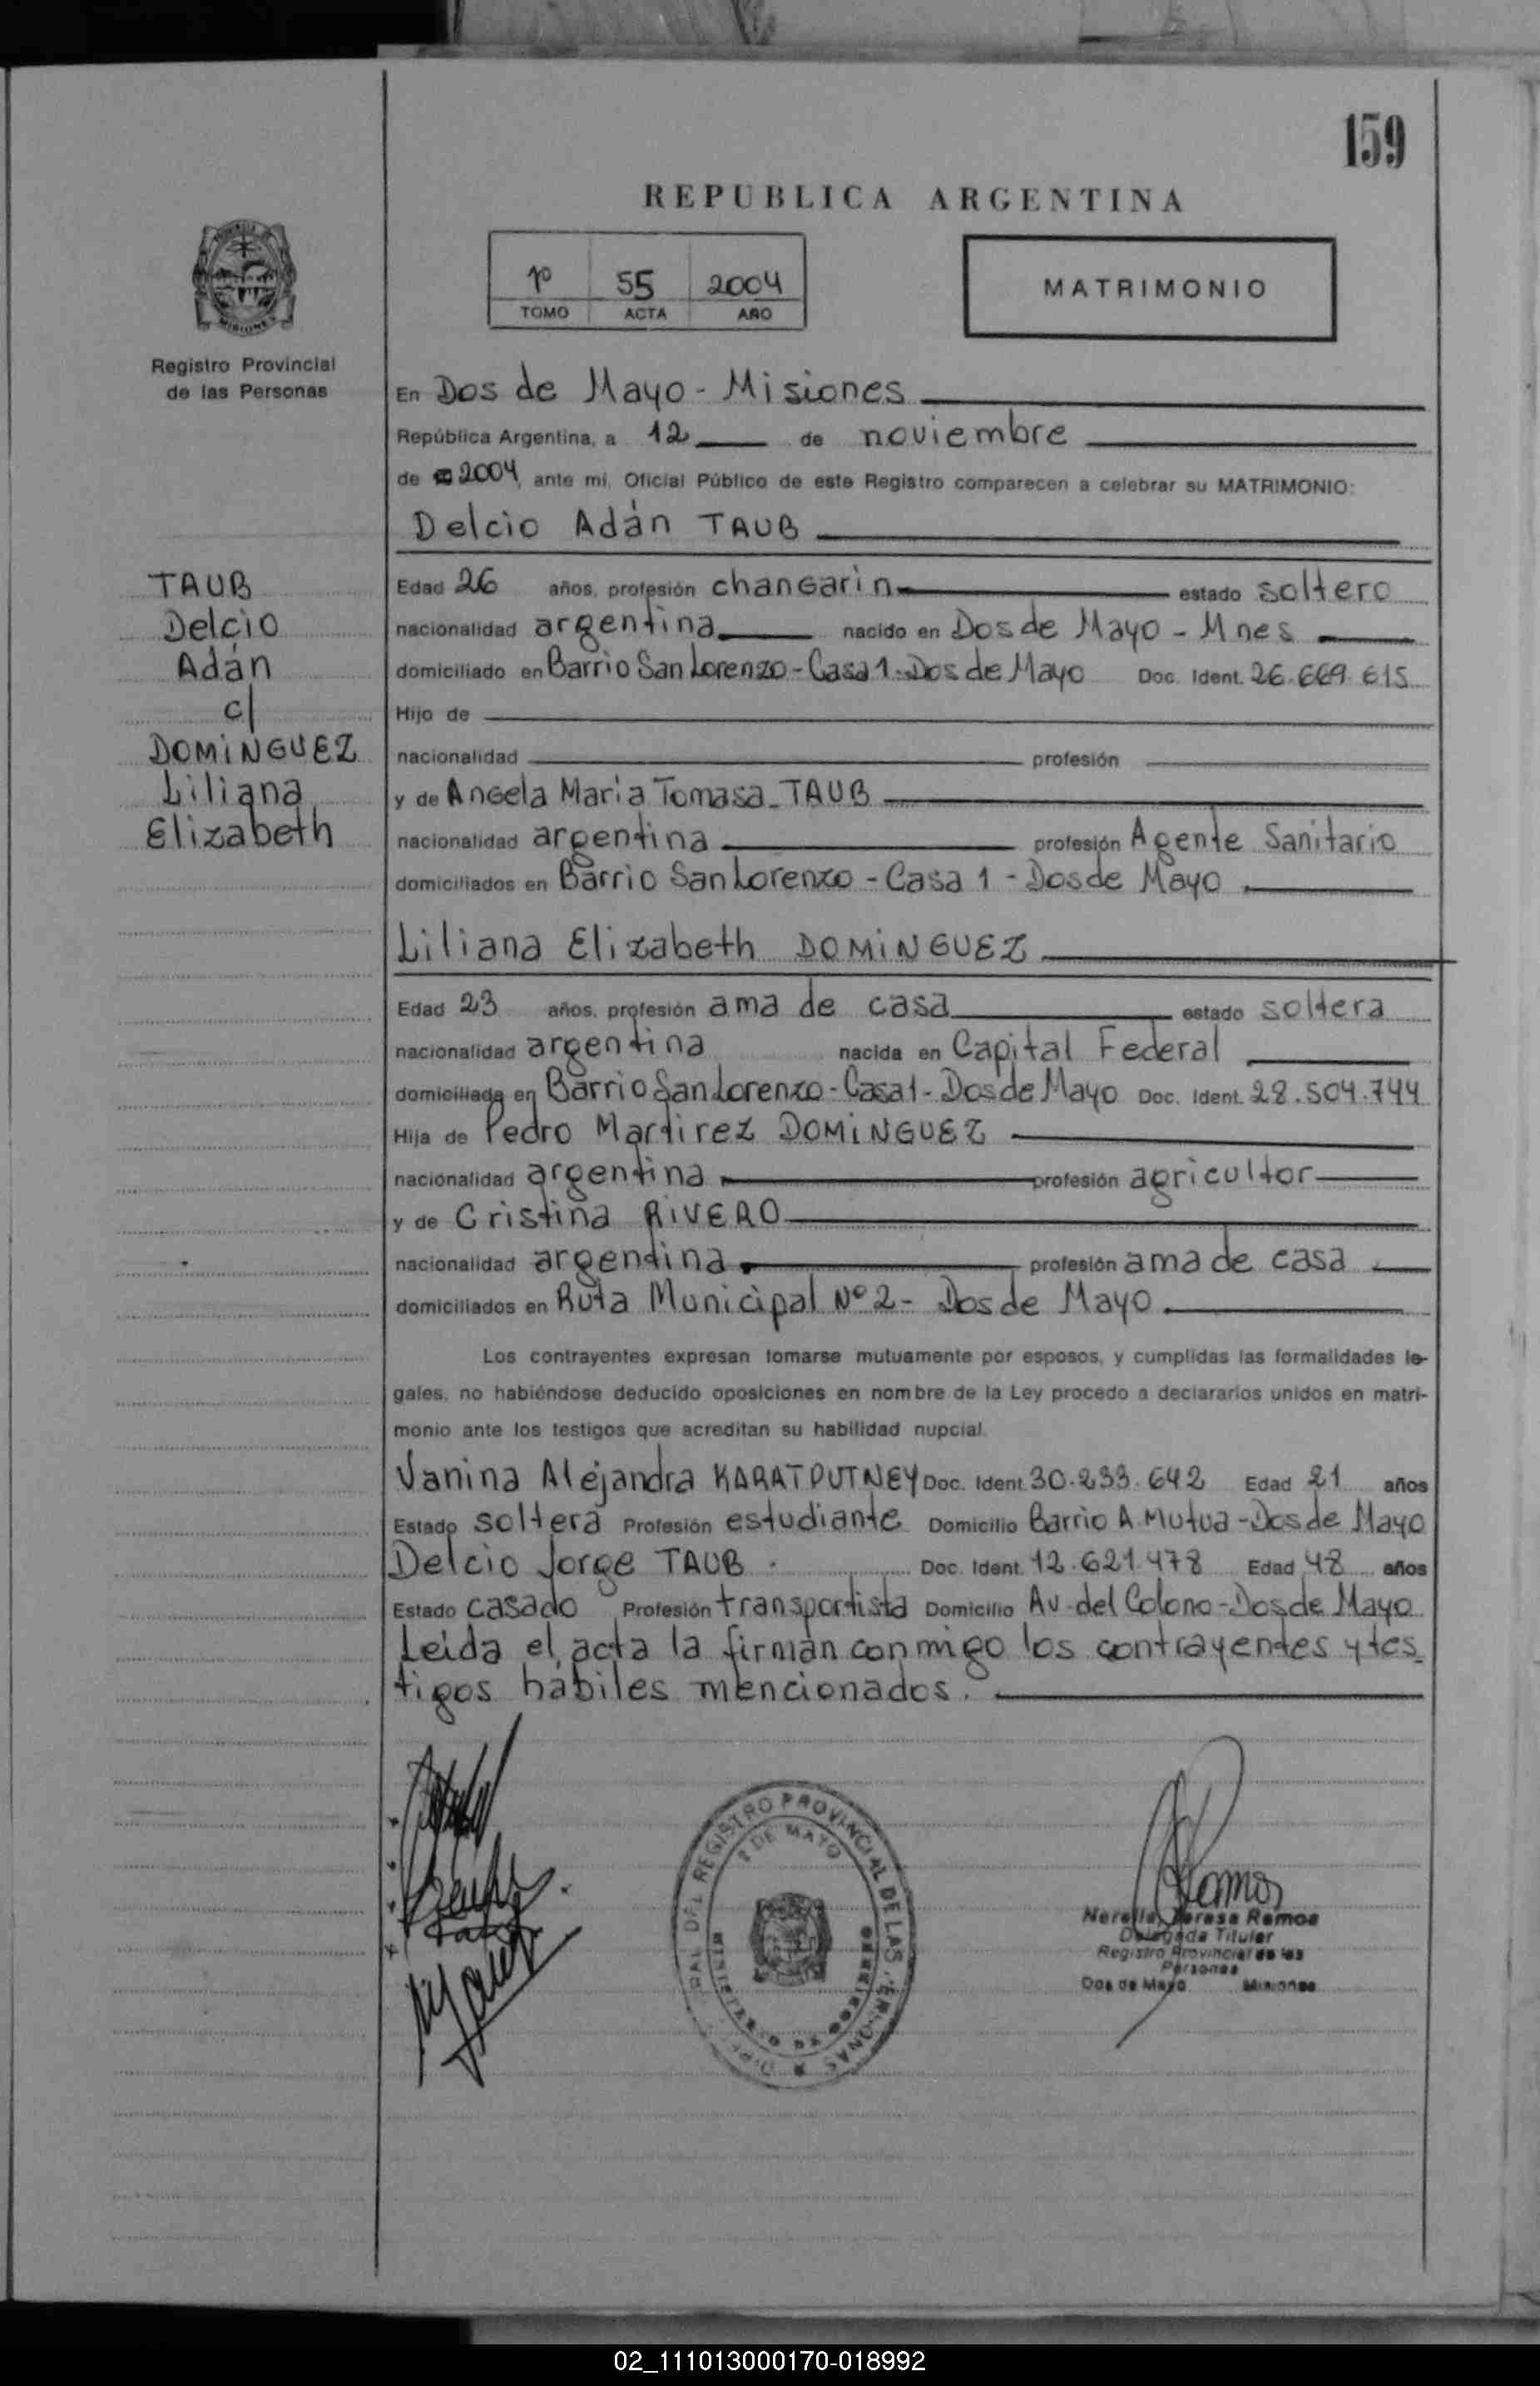 159
REPUBLICA ARGENTINA
1º 55 2004
TOMO ACTA AÑO
MATRIMONIO
Registro Provincial
de las Personas
En Dos de Mayo - Misiones
República Argentina, a 12 de noviembre
de 2004, ante mi, Oficial Público de este Registro comparecen a celebrar su MATRIMONIO:
Delcio Adán TAUB
TAUB
Delcio
Adán
c/
DOMINGUEZ
Liliana
Elizabeth
Edad 26 años, profesión changarin estado soltero
nacionalidad argentina nacido en Dos de Mayo - Mnes
domiciliado en Barrio San Lorenzo - Casa 1 - Dos de Mayo Doc. Ident. 26.669.615
Hijo de
nacionalidad profesión
y de Angela Maria Tomasa TAUB
nacionalidad argentina profesión Agente Sanitario
domiciliados en Barrio San Lorenzo - Casa 1 - Dos de Mayo
Liliana Elizabeth DOMINGUEZ
Edad 23 años, profesión ama de casa estado soltera
nacionalidad argentina nacida en Capital Federal
domiciliada en Barrio San Lorenzo - Casa 1 - Dos de Mayo Doc. Ident. 28.504.744
Hija de Pedro Martirez DOMINGUEZ
nacionalidad argentina profesión agricultor
y de Cristina RIVERO
nacionalidad argentina profesión ama de casa
domiciliados en Ruta Municipal Nº 2 - Dos de Mayo
Los contrayentes expresan tomarse mutuamente por esposos, y cumplidas las formalidades le-
gales, no habiéndose deducido oposiciones en nombre de la Ley procedo a declararlos unidos en matri-
monio ante los testigos que acreditan su habilidad nupcial.
Vanina Alejandra KARATPUTNEY Doc. Ident. 30.233.642 Edad 21 años
Estado soltera Profesión estudiante Domicilio Barrio A. Mutua - Dos de Mayo
Delcio Jorge TAUB. Doc. Ident. 12.621.478 Edad 48 años
Estado casado Profesión transportista Domicilio Av. del Colono - Dos de Mayo
Leida el acta la firman conmigo los contrayentes y tes-
tigos hábiles mencionados.
REGISTRO PROVINCIAL DE LAS PERSONAS
2 DE MAYO
MINISTERIO DE GOBIERNO
Ramos
Teresa Ramos
Delegada Titular
Registro Provincial de las
Personas
Dos de Mayo Misiones
02_111013000170-018992